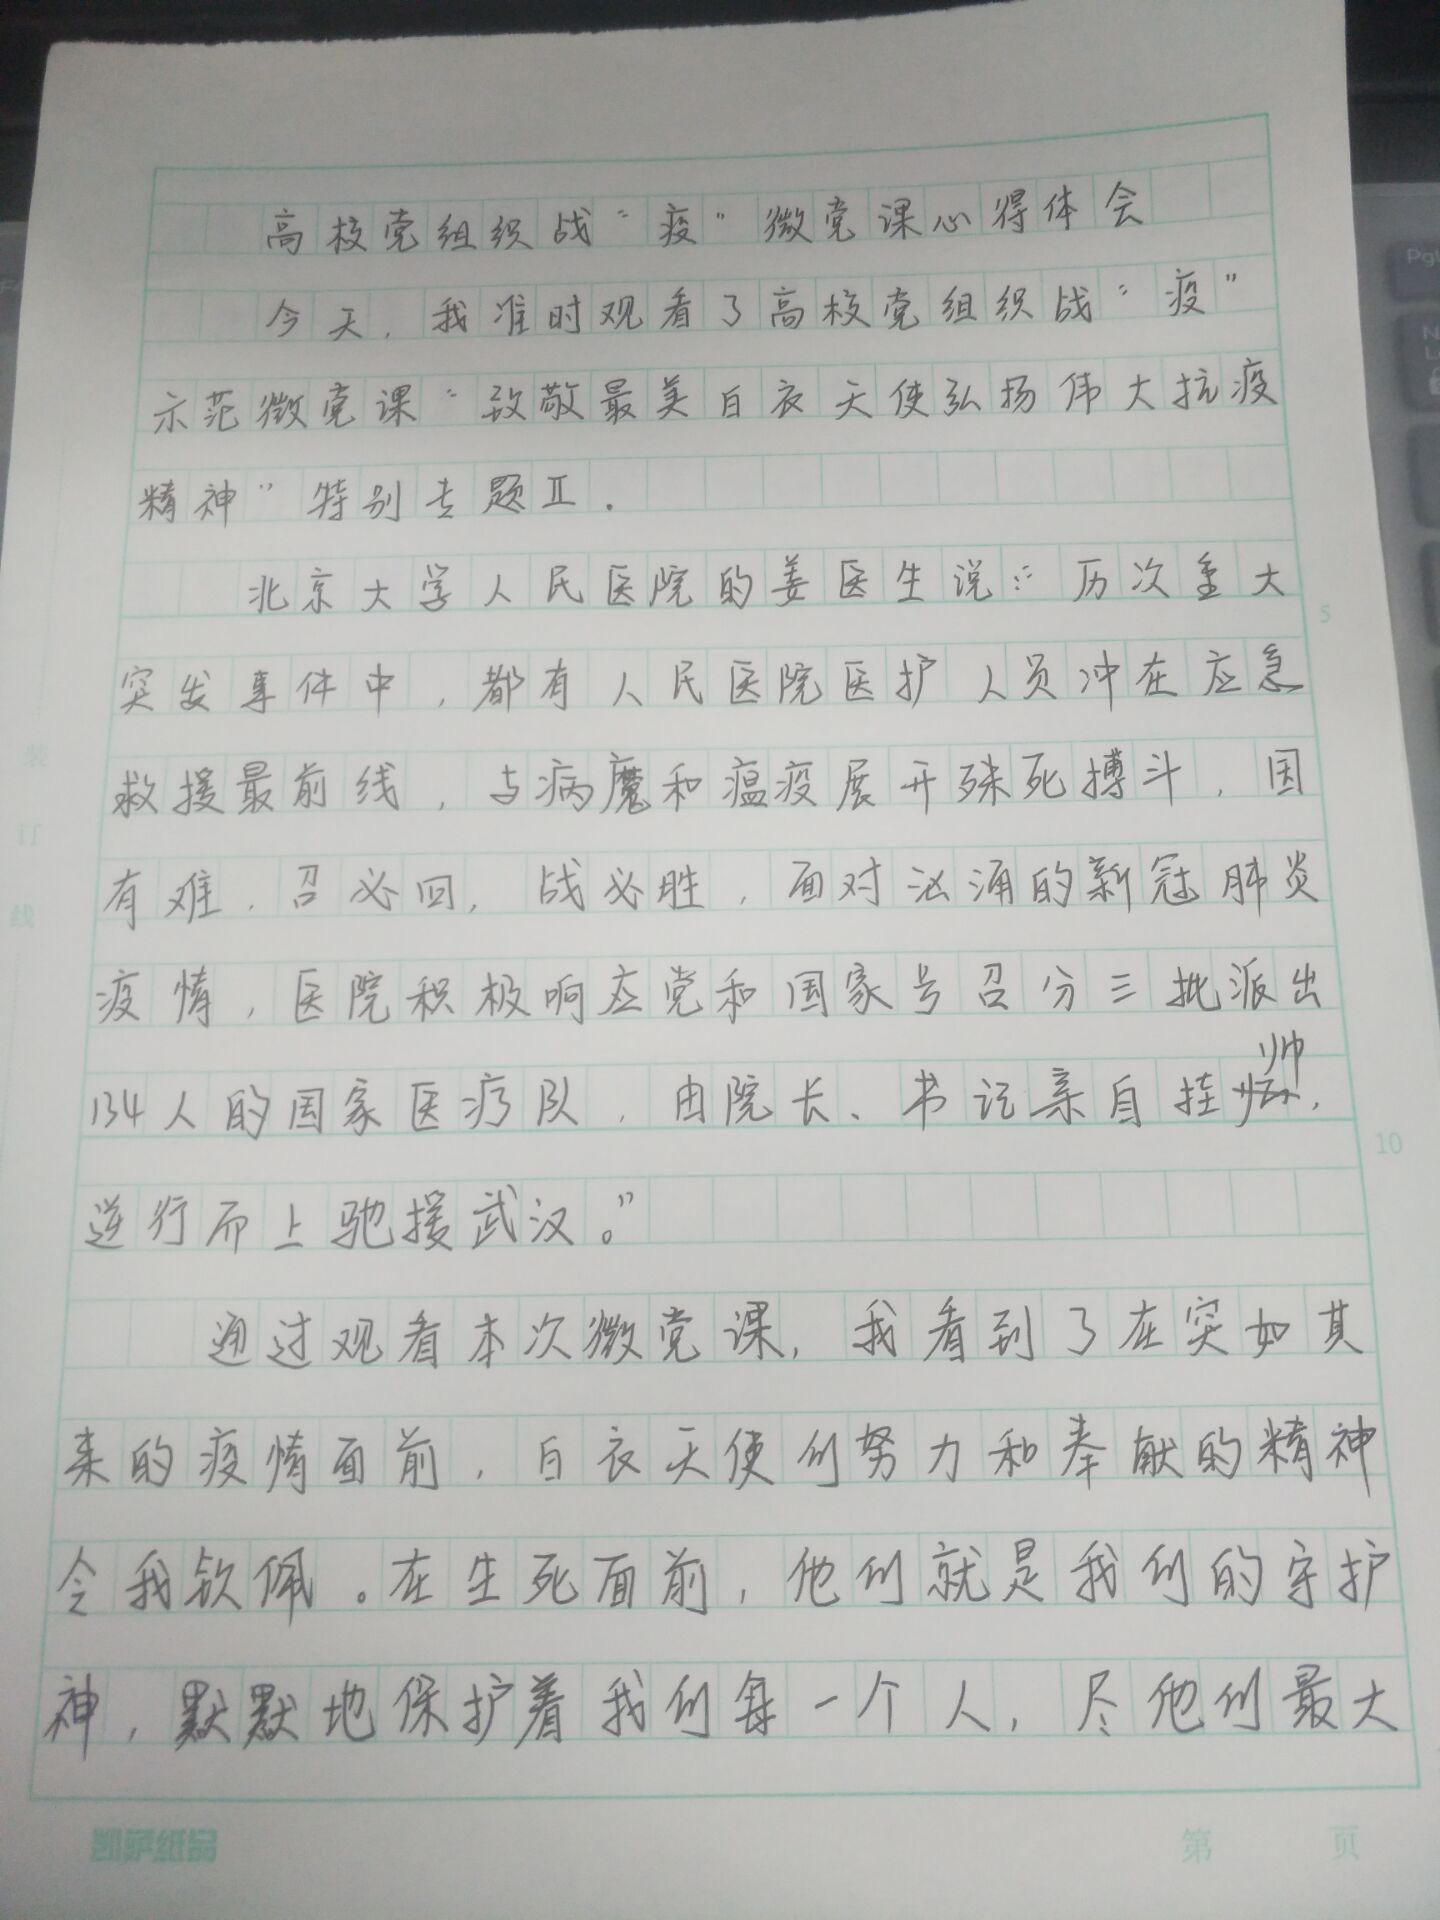 高校党组织战“疫”微党课心得体会
今天，我准时观看了高校党组织战“疫”
示范微党课“致敬最美白衣天使弘扬伟大抗疫
精神”特别专题Ⅱ.
北京大学人民医院的姜医生说：“历次重大
5
突发事件中，都有人民医院医护人员冲在应急
救援最前线，与病魔和瘟疫展开殊死搏斗，国
有难，召必回，战必胜，面对汹涌的新冠肺炎
疫情，医院积极响应党和国家号召分三批派出
134人的国家医疗队，由院长、书记亲自挂帅，
10
逆行而上驰援武汉。”
通过观看本次微党课，我看到了在突如其
来的疫情面前，白衣天使们努力和奉献的精神
令我钦佩。在生死面前，他们就是我们的守护
神，默默地保护着我们每一个人，尽他们最大
装
订
线
凯萨纸品
第 页
PgU